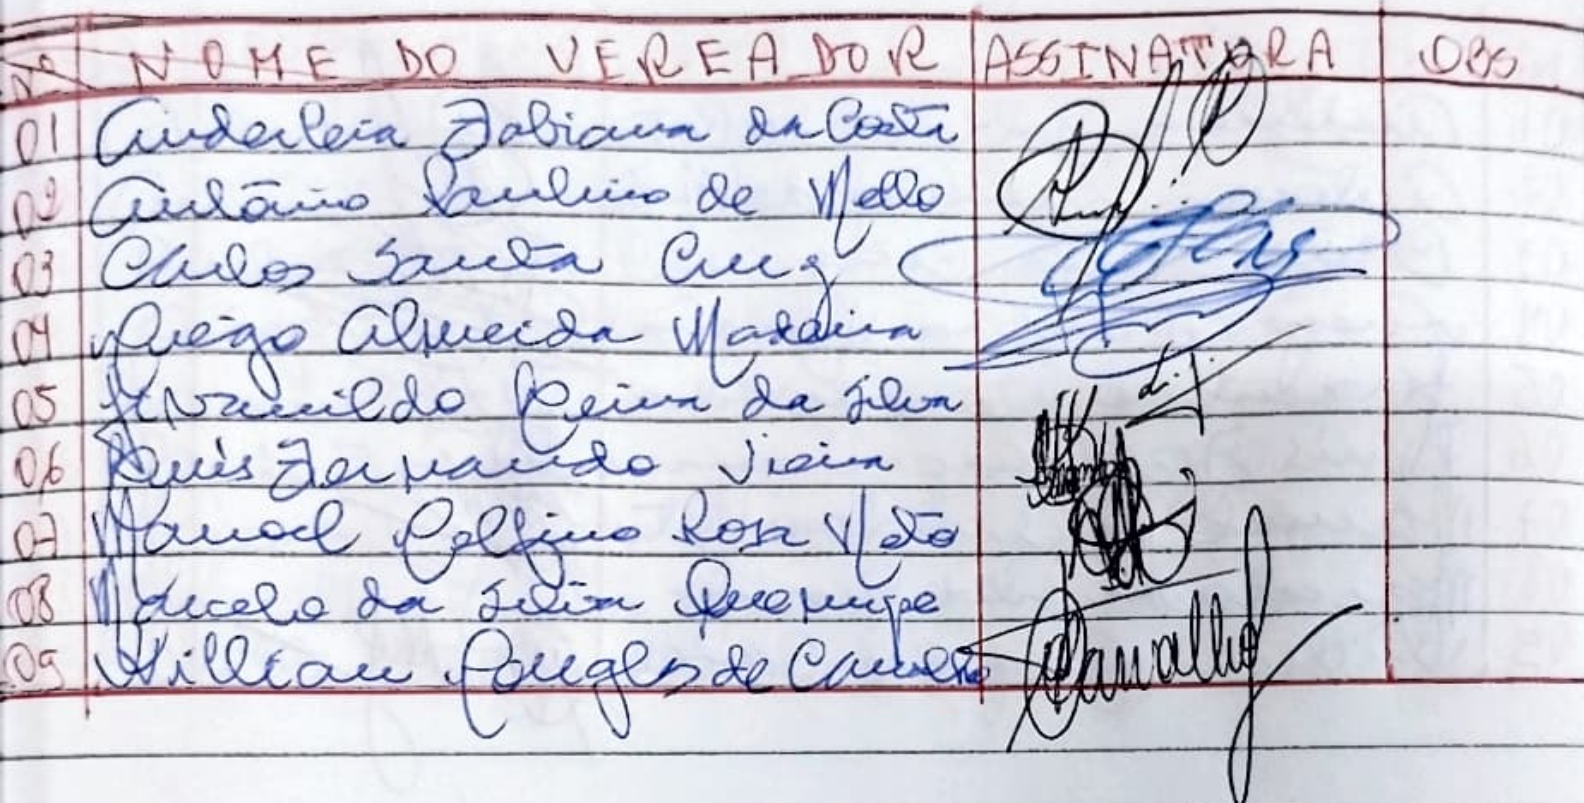 Nº NOME DO VEREADOR ASSINATURA OBS
01 Anderleia Fabiana da Costa
02 Antônio Paulino de Mello
03 Carlos Santa Cruz
04 Diego Almeida Madeira
05 da Silva
06 Luis Fernando Vieira
07 Manoel Delfino Rosa Neto
08 Marcelo da Silva
09 Willian Douglas de Carvalho Carvalho